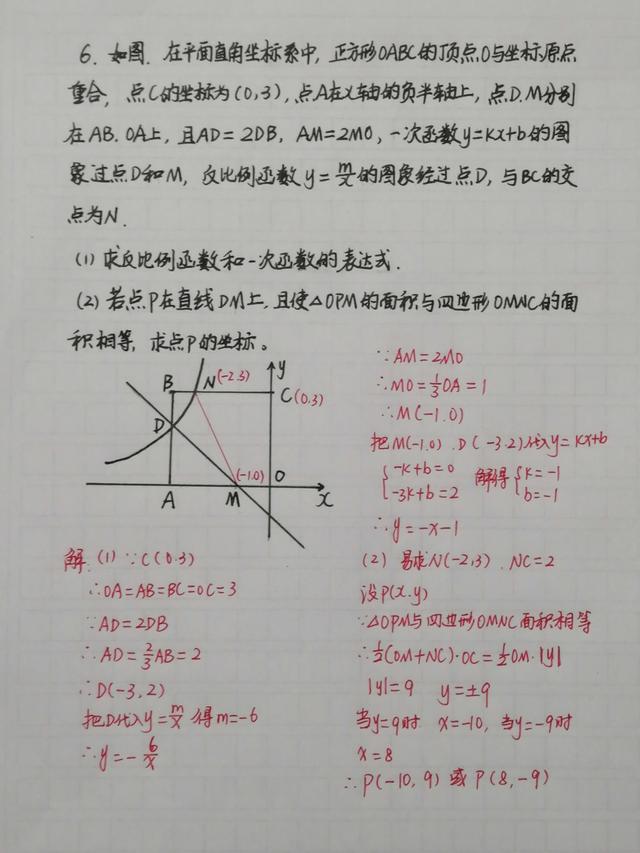 6. 如图. 在平面直角坐标系中, 正方形OABC的顶点O与坐标原点
重合, 点C的坐标为(0,3), 点A在x轴的负半轴上, 点D.M分别
在AB.OA上, 且AD=2DB, AM=2MO, 一次函数y=kx+b的图
象过点D和M, 反比例函数y=m/x的图象经过点D, 与BC的交
点为N.
(1) 求反比例函数和一次函数的表达式.
(2) 若点P在直线DM上, 且使△OPM的面积与四边形OMNC的面
积相等, 求点P的坐标。
B N(-2.3) y
C(0.3)
D
(-1.0) O
A M x
解.(1) ∵C(0.3)
∴OA=AB=BC=OC=3
∵AD=2DB
∴AD=2/3AB=2
∴D(-3,2)
把D代入y=m/x 得m=-6
∴y=-6/x
∵AM=2MO
∴MO=1/3OA=1
∴M(-1.0)
把M(-1.0).D(-3.2)代入y=kx+b
{-k+b=0 解得{k=-1
-3k+b=2 b=-1
∴y=-x-1
(2) 易求N(-2,3).NC=2
设P(x.y)
∵△OPM与四边形OMNC面积相等
∴1/2(OM+NC)·OC=1/2OM·|y|
|y|=9 y=±9
当y=9时 x=-10, 当y=-9时
x=8
∴P(-10,9) 或 P(8,-9)